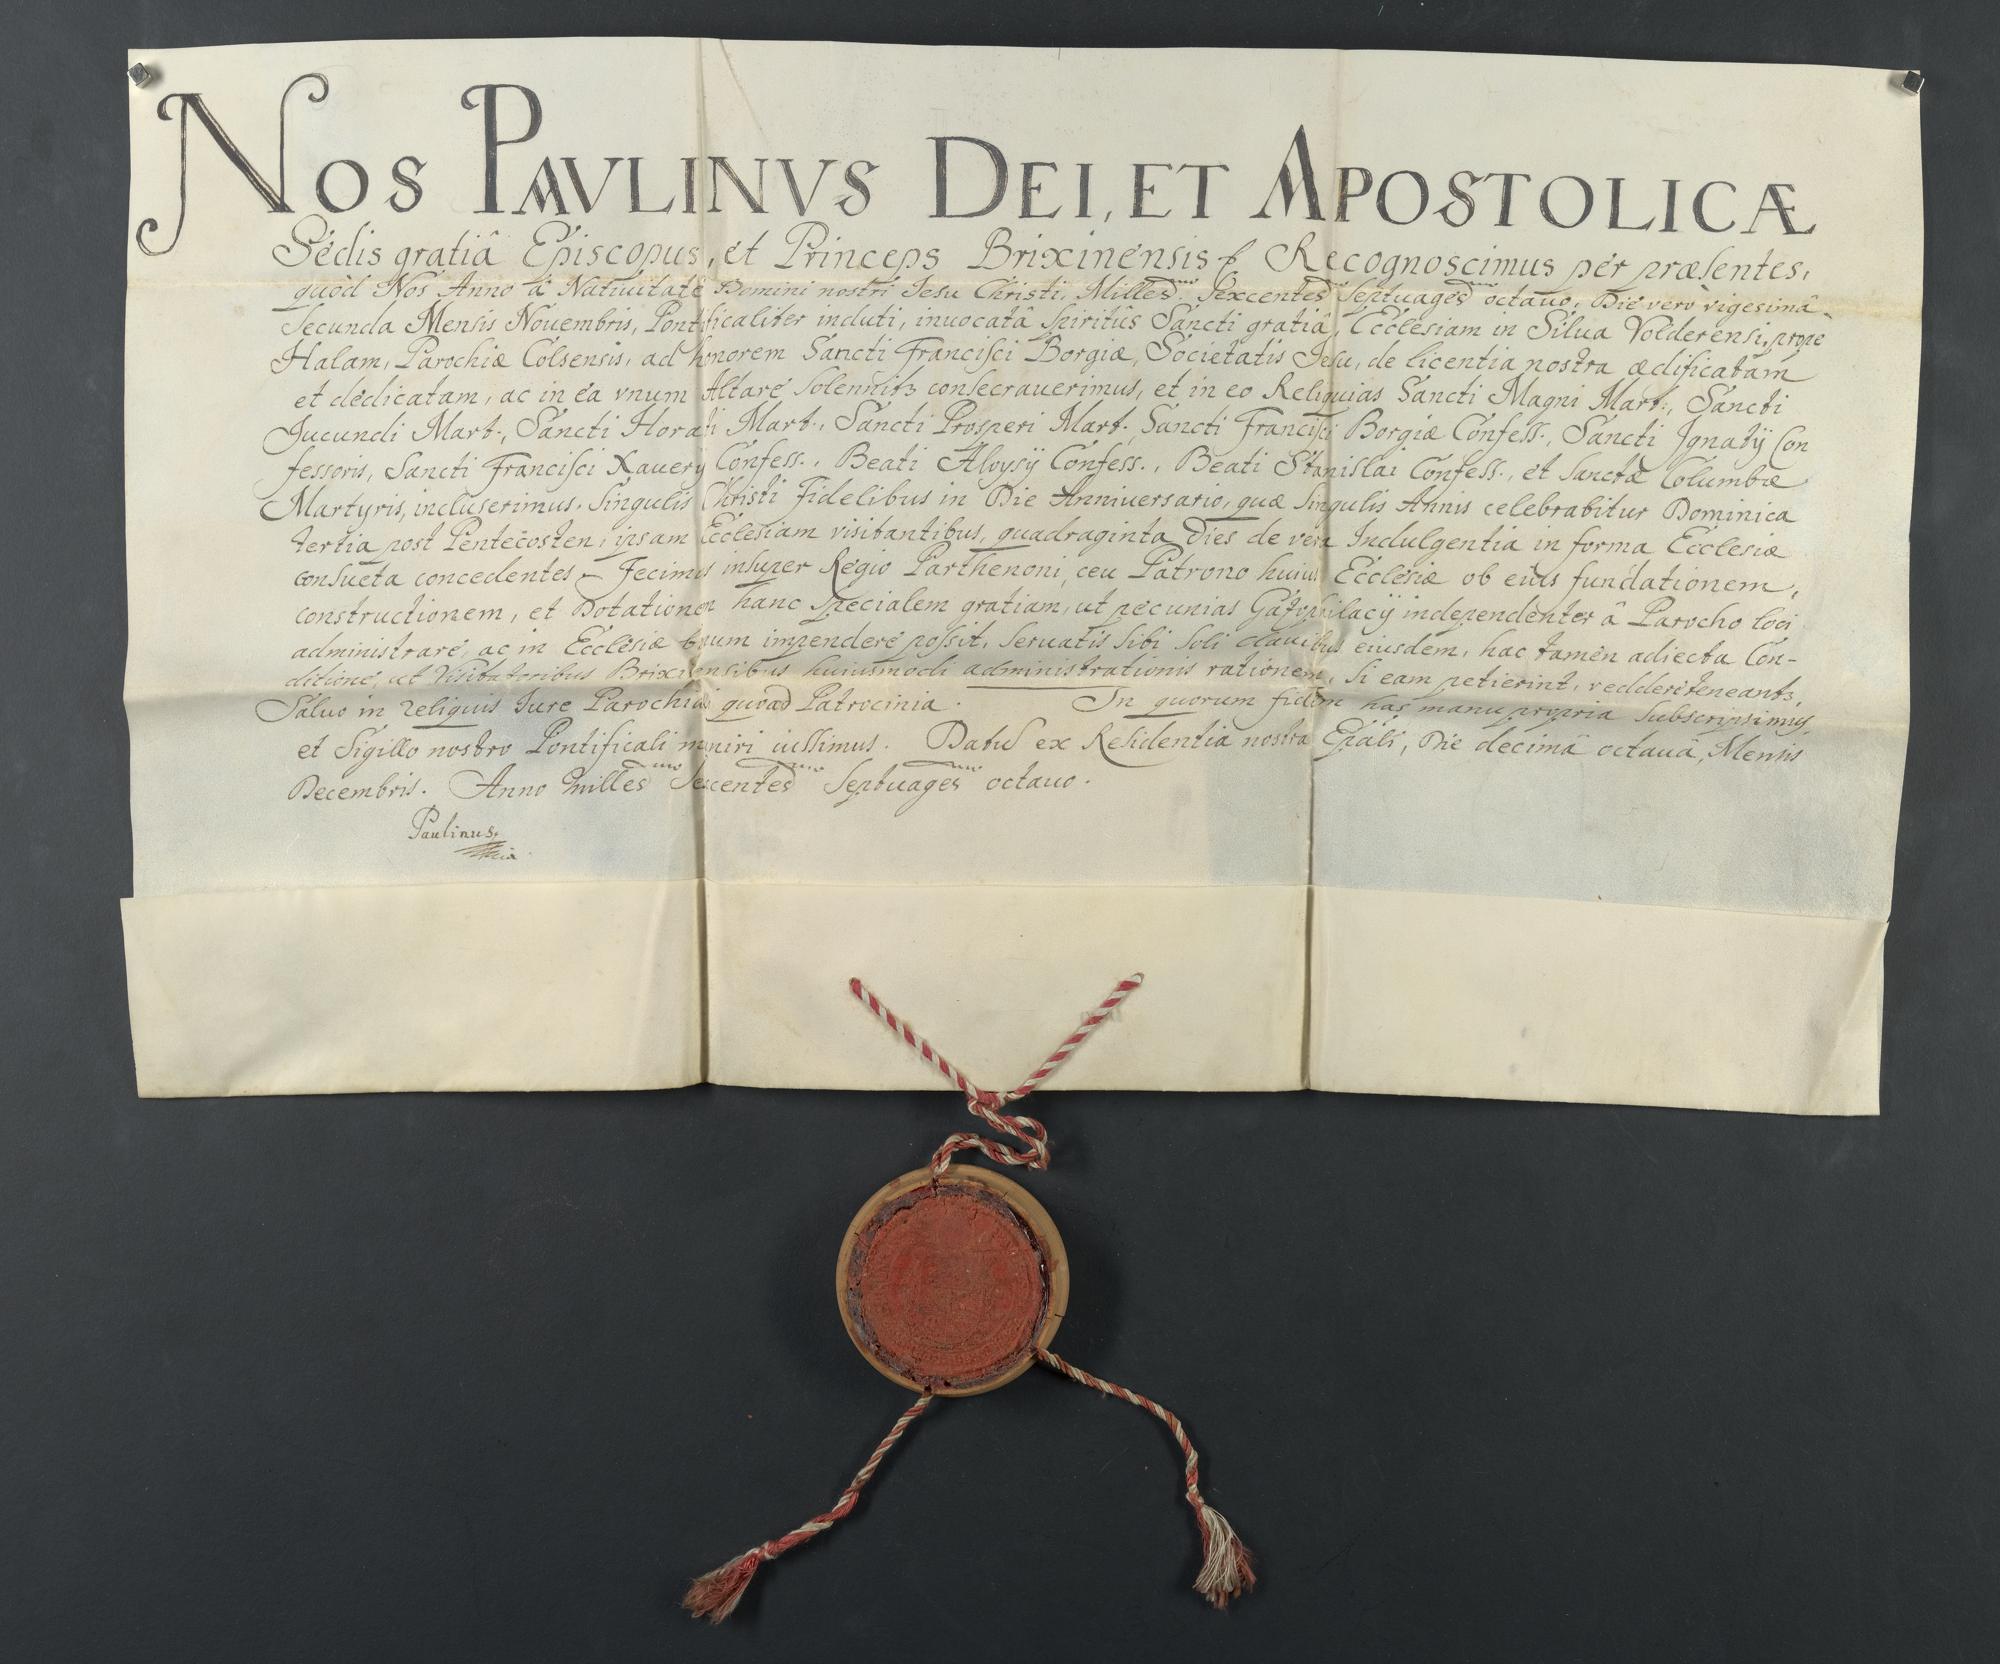 NOS PAVLINVS DEI, ET APOSTOLICÆ
Sedis gratiâ Episcopus, et Princeps Brixinensis Recognoscimus per præsentes,
quòd Nos Anno â Natiuitate Domini nostri Jesu Christi, Milles.mo Sexcentes.mo Septuages.mo octauo, Die verò vigesimâ
secunda Mensis Nouembris, Pontificaliter induti, inuocatâ Spiritûs Sancti gratiâ, Ecclesiam in Silua Volderensi, prope
Halam, Parochiæ Colsensis, ad honorem Sancti Francisci Borgiæ, Societatis Jesu, de licentia nostra ædificatam
et dedicatam, ac in ea vnum Altare solennitr consecrauerimus, et in eo Reliquias Sancti Magni Mart:, Sancti
Jucundi Mart:, Sancti Horati Mart:, Sancti Prosperi Mart:, Sancti Francisci Borgiæ Confess:, Sancti Ignatij Con
fessoris, Sancti Francisci Xauerij Confess:, Beati Aloysij Confess:, Beati Stanislai Confess:, et Sanctæ Columbæ
Martyris, incluserimus, singulis Christi fidelibus in Die Anniuersario, quæ singulis Annis celebrabitur Dominica
tertia post Pentecosten, ipsam Ecclesiam visitantibus, quadraginta Dies de vera Indulgentia in forma Ecclesiæ
consueta concedentes. Fecimus insuper Regio Parthenoni, ceu Patrono huius Ecclesiæ ob eius fundationem,
constructionem, et Dotationem hanc specialem gratiam, ut pecunias Gazophilacij independenter â Parocho loci
administrare, ac in Ecclesiæ bonum impendere possit, seruatis sibi soli clauibus eiusdem, hac tamen adiecta Con-
ditione, ut Visitatoribus Brixinensibus huiusmodi administrationis rationem, si eam petierint, reddere teneantr,
Saluo in reliquis Jure Parochiali quoad Patrocinia. In quorum fidem has manu propria subscripsimus,
et Sigillo nostro Pontificali muniri iussimus. Datum ex Residentia nostra Epãli, Die decimâ octauâ, Mensis
Decembris. Anno Milles.mo Sexcentes.mo Septuages.mo octauo.
Paulinus